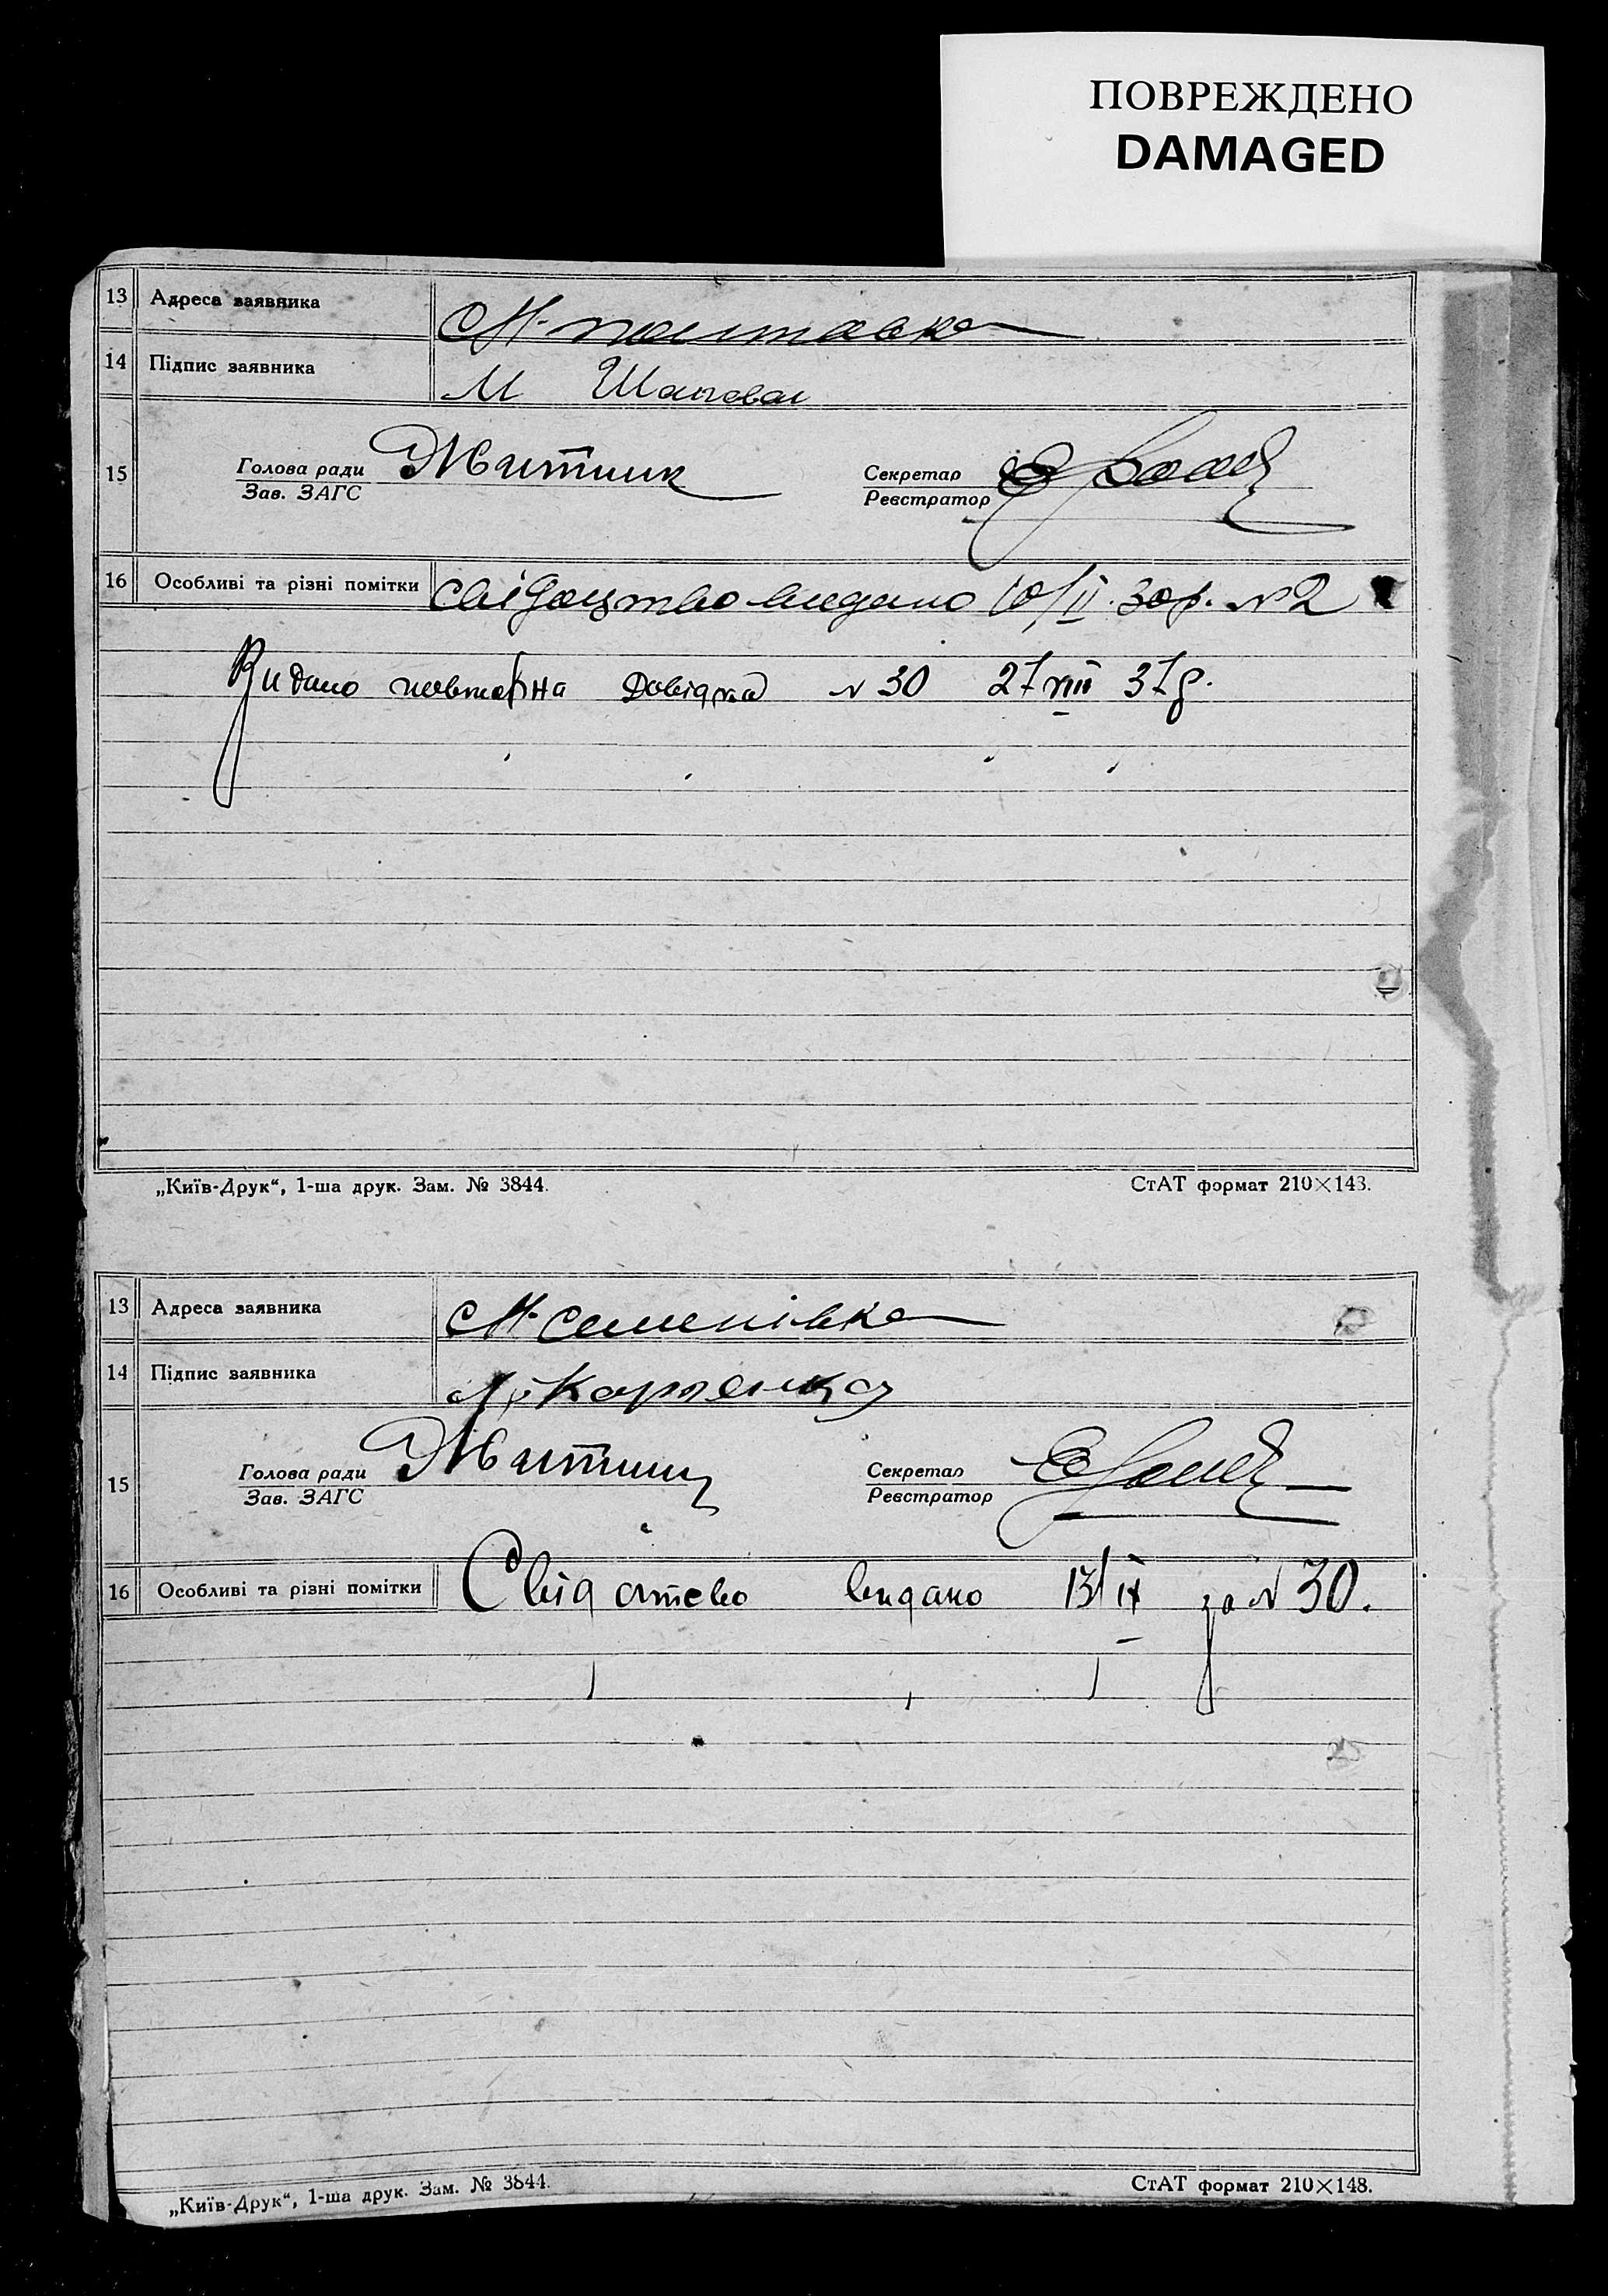 ПОВРЕЖДЕНО
DAMAGED
13 Адреса заявника
14 Підпис заявника М
15 Голова ради Житник Секретар
Зав. ЗАГС Реєстратор
16 Особливі та різні помітки Свідоцтво видано 10/II 30р. №2
Видано повторна довідка №30 27 VIII 37р.
„Київ-Друк“, 1-ша друк. Зам. № 3844. СтАТ формат 210×143.
13 Адреса заявника с. Семенівка
14 Підпис заявника
15 Голова ради Житник Секретар
Зав. ЗАГС Реєстратор
16 Особливі та різні помітки Свідотство видано 13/IX за №30.
„Київ-Друк“, 1-ша друк. Зам. № 3844. СтАТ формат 210×148.